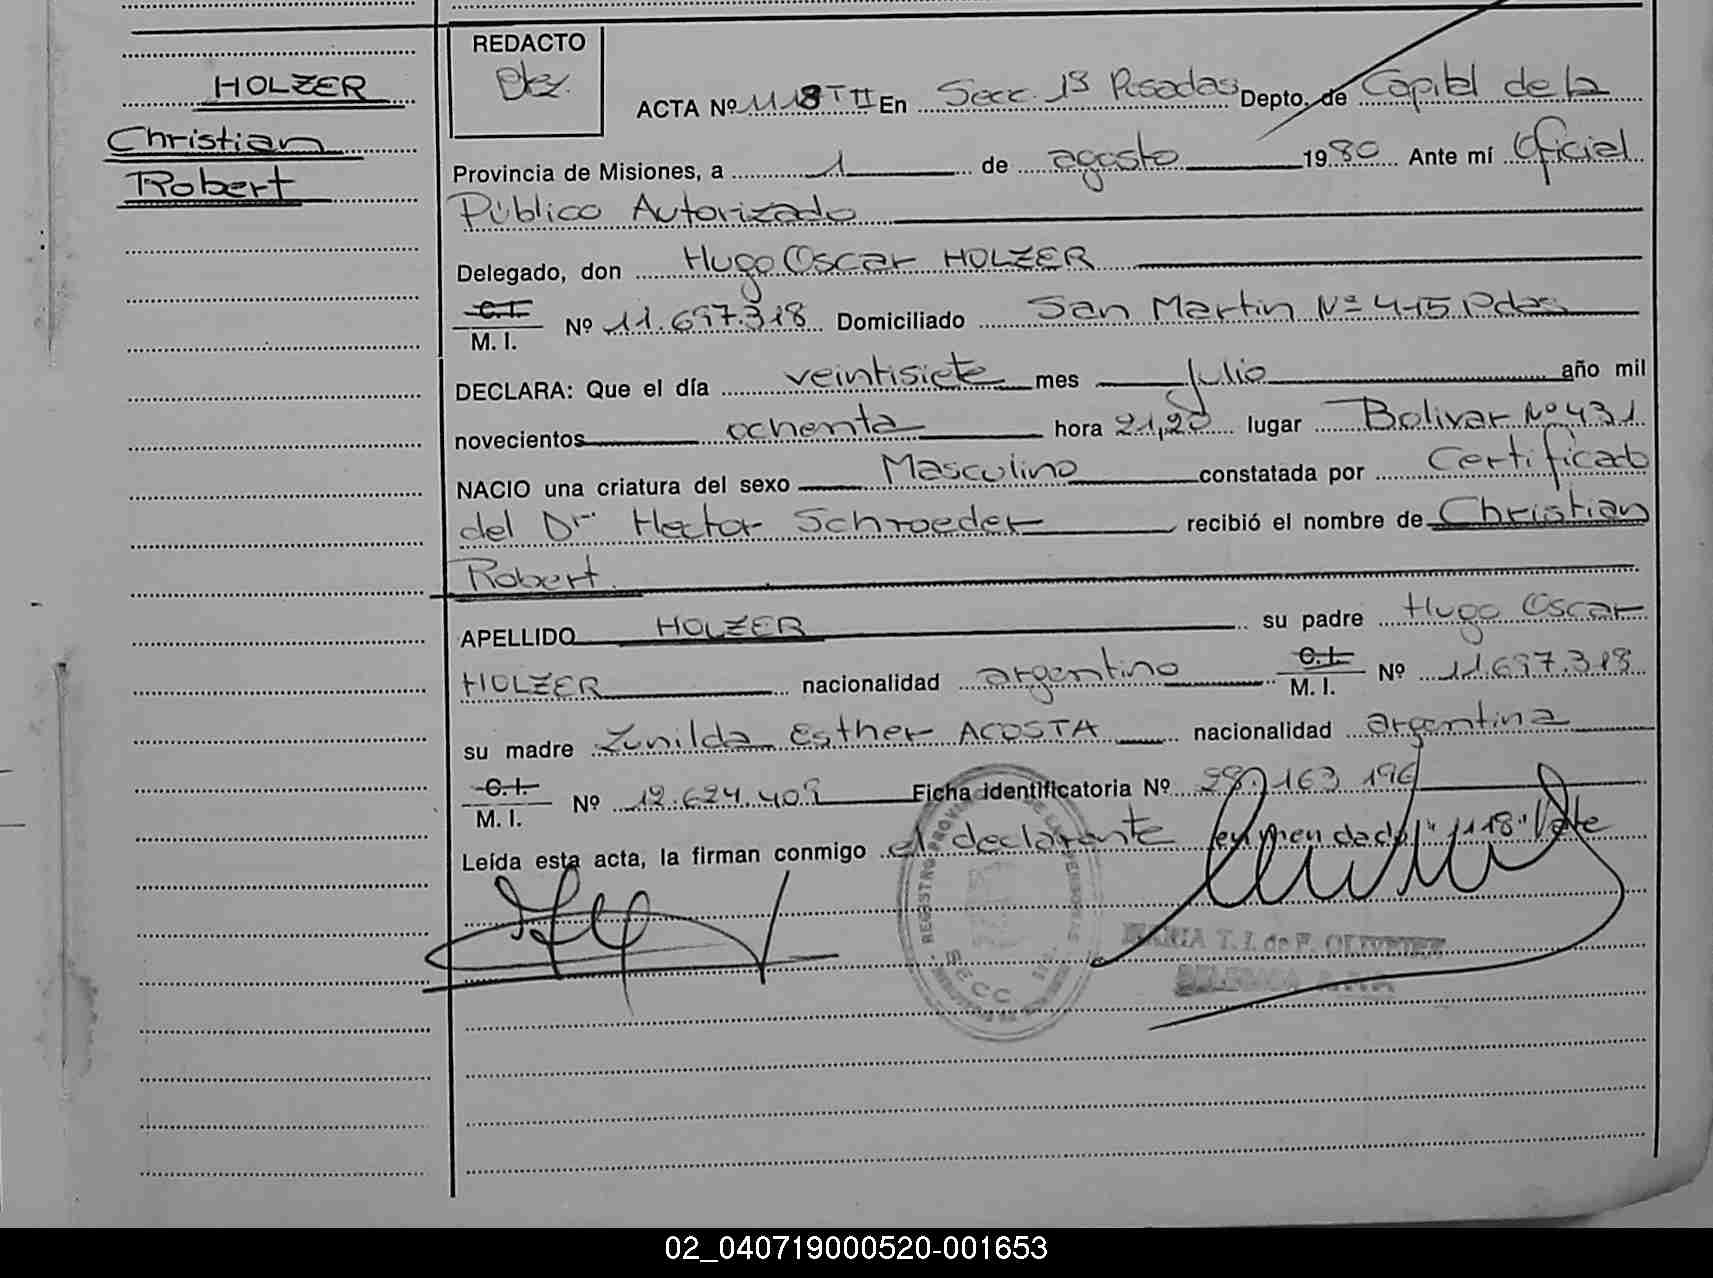 HOLZER
Christian
Robert
REDACTO
ACTA Nº 1118 T II En Secc. 1ª Posadas Depto. de Capital de la
Provincia de Misiones, a 1 de agosto 1980 Ante mí Oficial
Público Autorizado
Delegado, don Hugo Oscar HOLZER
C.I.
M. I. Nº 11.697.318 Domiciliado San Martin Nº 415 Pdas
DECLARA: Que el día veintisiete mes Julio año mil
novecientos ochenta hora 21,20 lugar Bolivar Nº 431
NACIO una criatura del sexo Masculino constatada por Certificado
del Dr. Hector Schroeder recibió el nombre de Christian
Robert.
APELLIDO HOLZER su padre Hugo Oscar
HOLZER nacionalidad argentino C.I. M. I. Nº 11.697.318
su madre Zunilda Esther ACOSTA nacionalidad argentina
C.I.
M. I. Nº 12.624.409 Ficha identificatoria Nº 28.163.196
Leída esta acta, la firman conmigo el declarante enmendado "1118" Vale
SECC
MARIA T. I. de F.
02_040719000520-001653